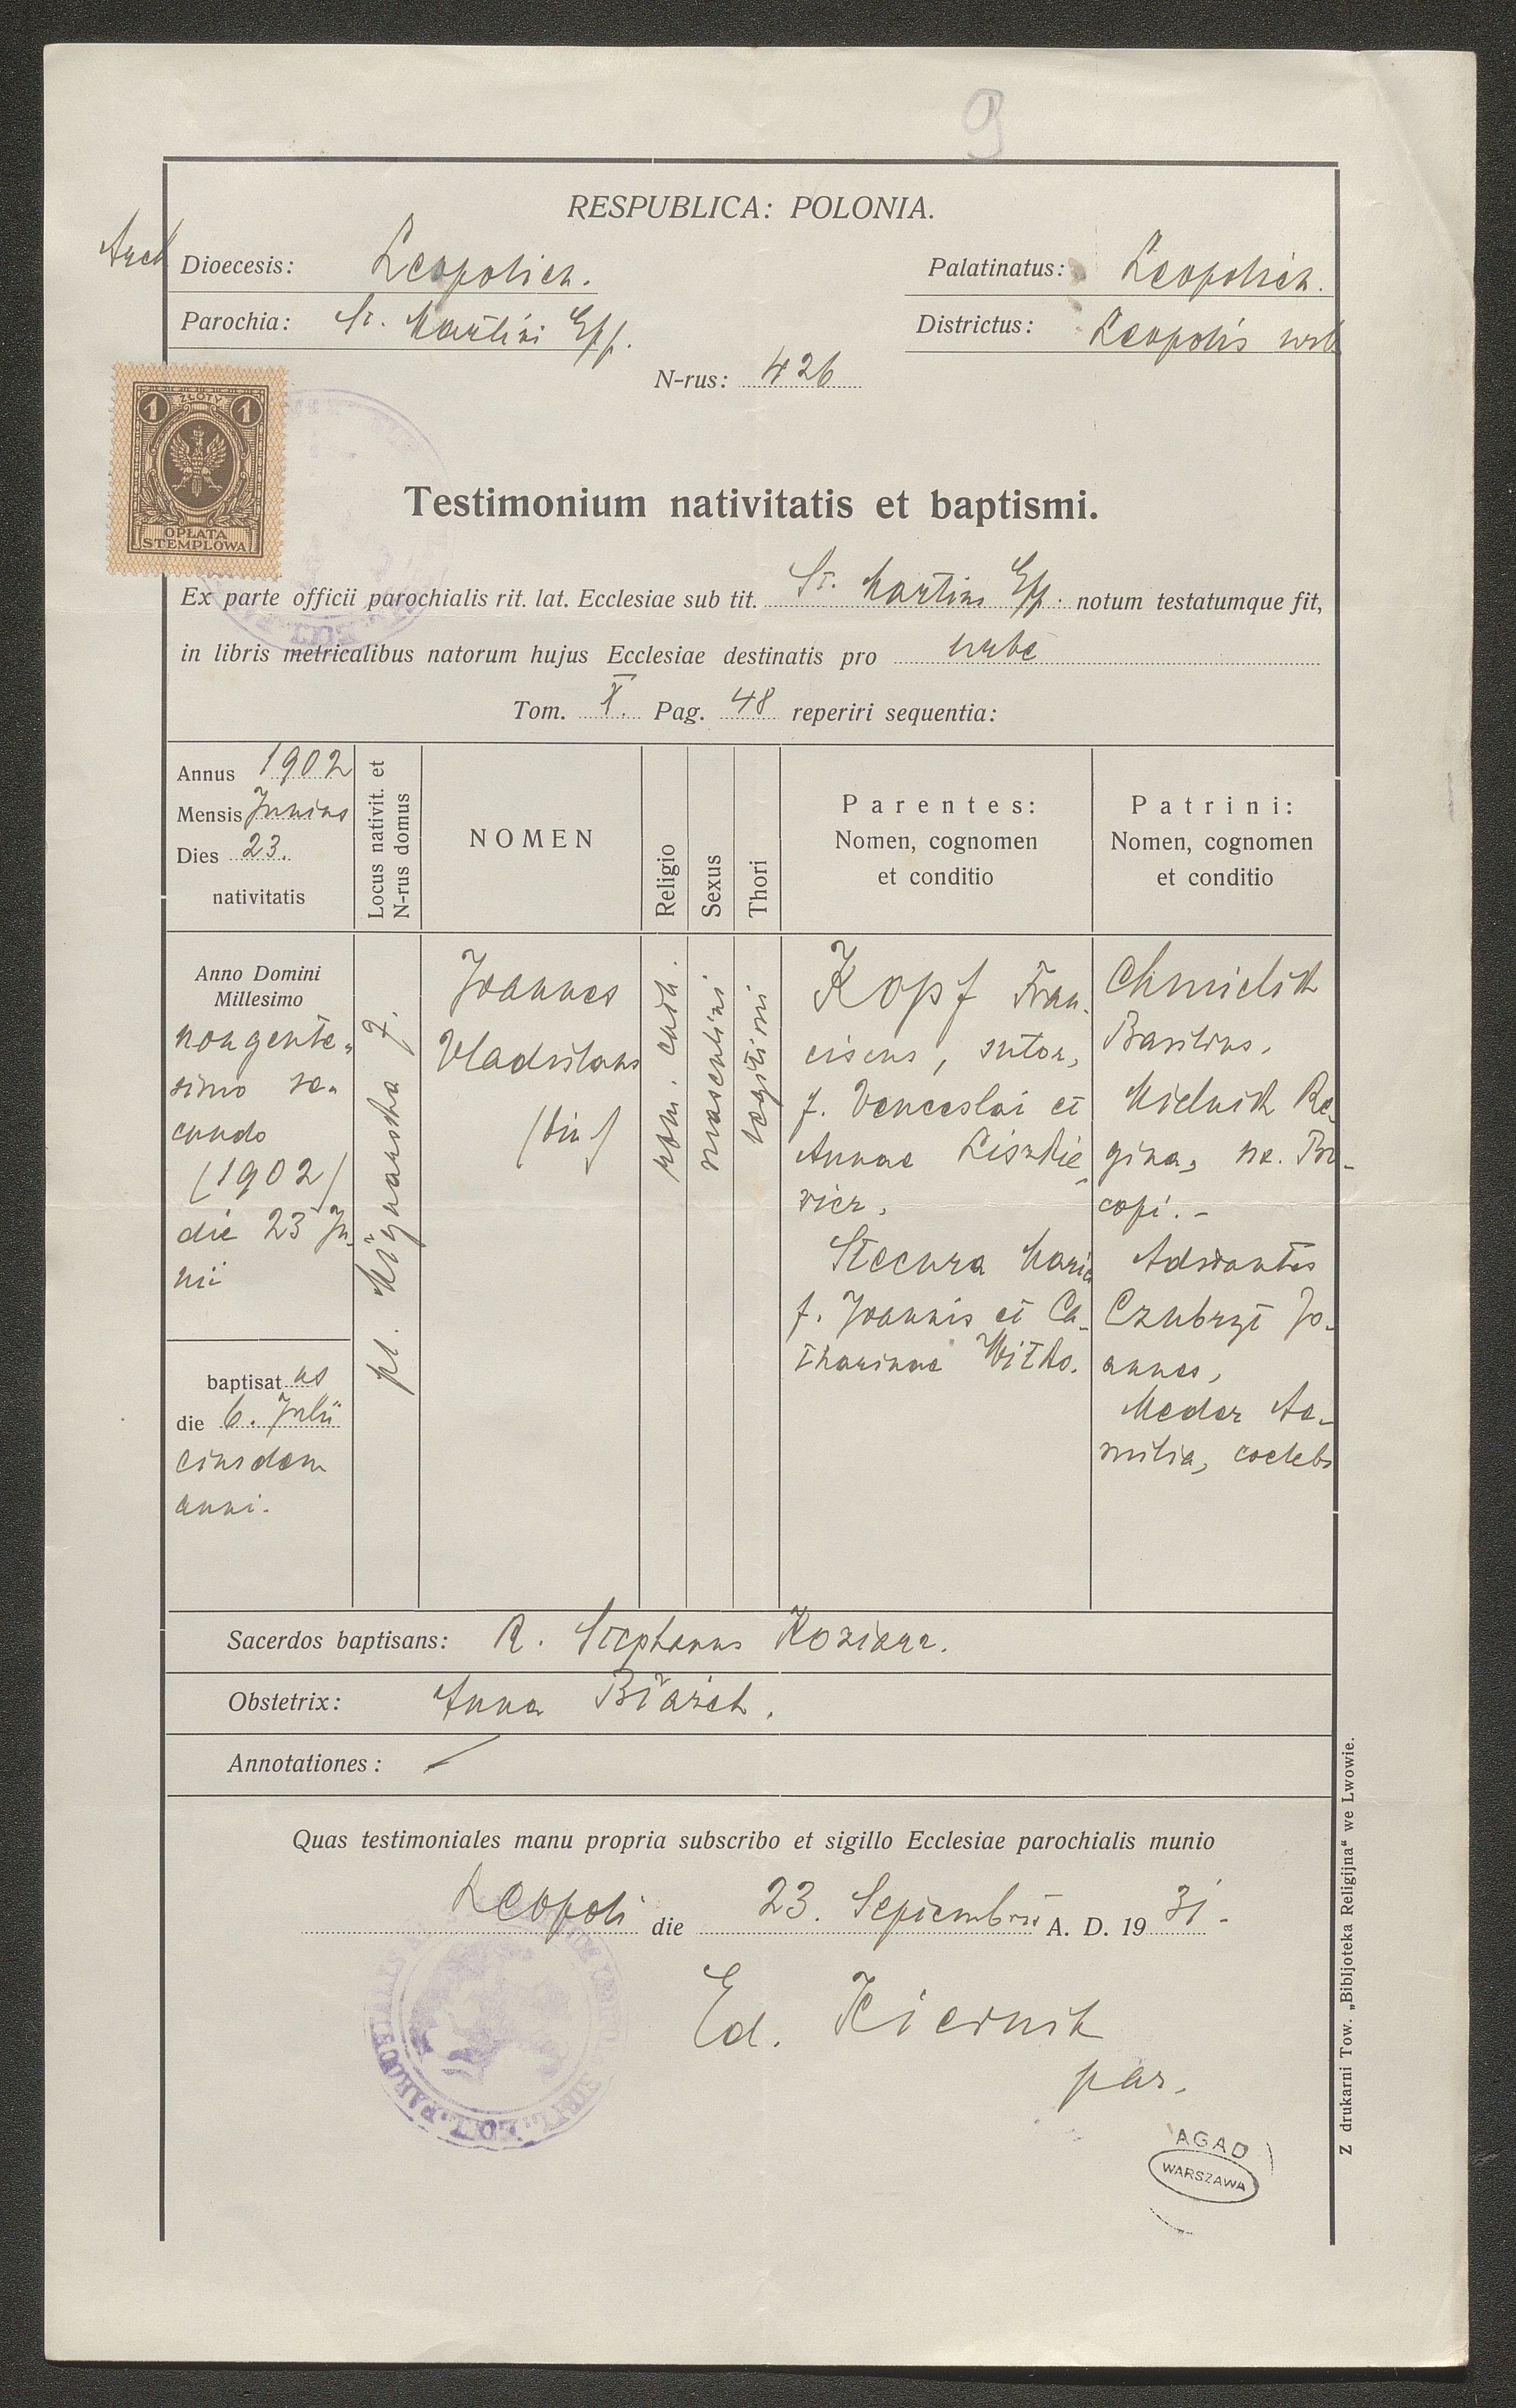 9
RESPUBLICA: POLONIA.
Arch Dioecesis: Leopolien.
Palatinatus: Leopolien.
Parochia: St. Martini Epp.
Districtus: Leopolis urb
N-rus: 426
1 ZŁOTY 1
OPŁATA
STEMPLOWA
Testimonium nativitatis et baptismi.
Ex parte officii parochialis rit. lat. Ecclesiae sub tit. St. Martini Epp. notum testatumque fit,
in libris metricalibus natorum hujus Ecclesiae destinatis pro urbe
Tom. X. Pag. 48 reperiri sequentia:
Annus 1902
Mensis Junius
Dies 23.
nativitatis
Locus nativit. et
N-rus domus
NOMEN
Religio
Sexus
Thori
Parentes:
Nomen, cognomen
et conditio
Patrini:
Nomen, cognomen
et conditio
Anno Domini
Millesimo
nongente-
simo se-
cundo
(1902)
die 23 Ju-
nii
baptisatus
die 6. Julii
eiusdem
anni.
pl. Misjonarska 7.
Joannes
Vladislaus
(bin.)
rom. cath.
masculini
legitimi
Kopf Fran-
ciscus, sutor,
f. Venceslai et
Annae Liszkie-
wicz,
Stecura Maria
f. Joannis et Ca-
tharinae Witko.
Chmielik
Basilius,
Mielnik Re-
gina, ux. Pro-
copi. -
Adstantes
Czubryt Jo-
annes,
Meder Ae-
milia, coelebs
Sacerdos baptisans: R. Stephanus Koziarz.
Obstetrix: Anna
Annotationes: /
Quas testimoniales manu propria subscribo et sigillo Ecclesiae parochialis munio
Leopoli die 23. Septembris A. D. 1931.
Ed. Kiernik
par.
AGAD
WARSZAWA
Z drukarni Tow. „Bibljoteka Religijna“ we Lwowie.